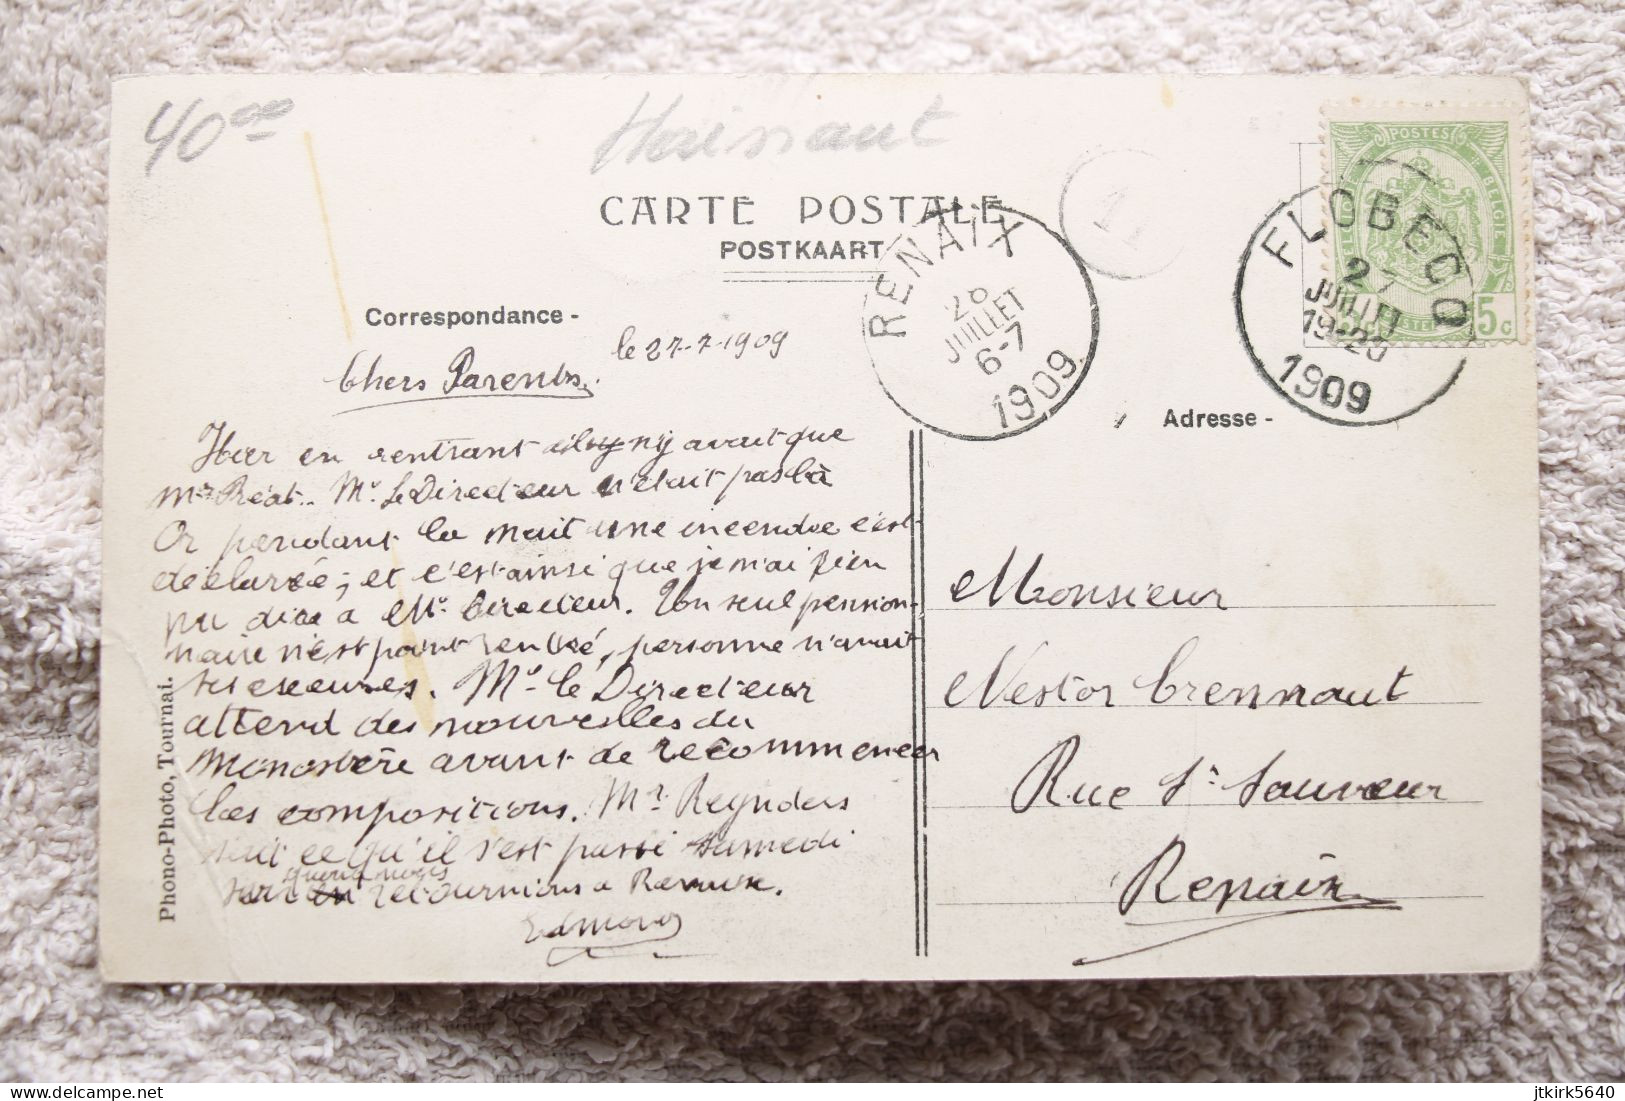 40 00
Hainaut
CARTE POSTALE
POSTKAART
POSTES
BELGIE
5c
RENAIX
28
JUILLET
6-7
1909
1
FLOBECQ
27
JUILLET
19-20
1909
Correspondance -
le 27-7-1909
Chers Parents,
Hier en rentrant ny avait que
Mr Préat.. Mr Le Directeur n'était pas là
Or pendant la nuit une incendie c'est
déclarée; et c'est ainsi que je n'ai rien
pu dire a Mr Directeur. Un seul pension-
naire n'est point rentré, personne n'avait
ses excuses. Mr le Directeur
attend des nouvelles du
Monastère avant de recommencer
les compositions. Mr Reynders
sait ce qu'il s'est passé samedi
quand nous
sur en retournions a Renaix.
Edmond
Phono-Photo, Tournai.
Adresse -
Monsieur
Nestor Crennaut
Rue St Sauveur
Renaix
jtkirk5640